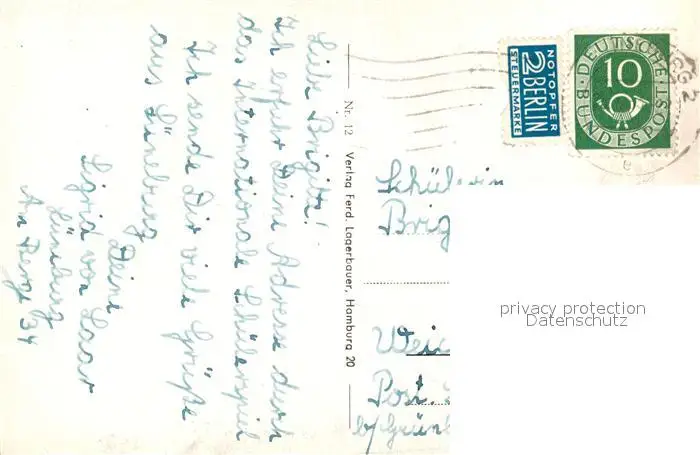 Liebe Brigitte!
Ich erfuhr Deine Adresse durch
das Internationale Schülerspiel
Ich sende Dir viele Grüße
aus Lüneburg
Deine
Sigrid von Saar
Lüneburg
Am Berge 34
Nr. 12 Verlag Ferd. Lagerbauer, Hamburg 20
NOTOPFER
2 BERLIN
STEUERMARKE
DEUTSCHE
10
BUNDESPOST
Schülerin
Brig
privacy protection
Datenschutz
Weic
Post.
b/Grünb